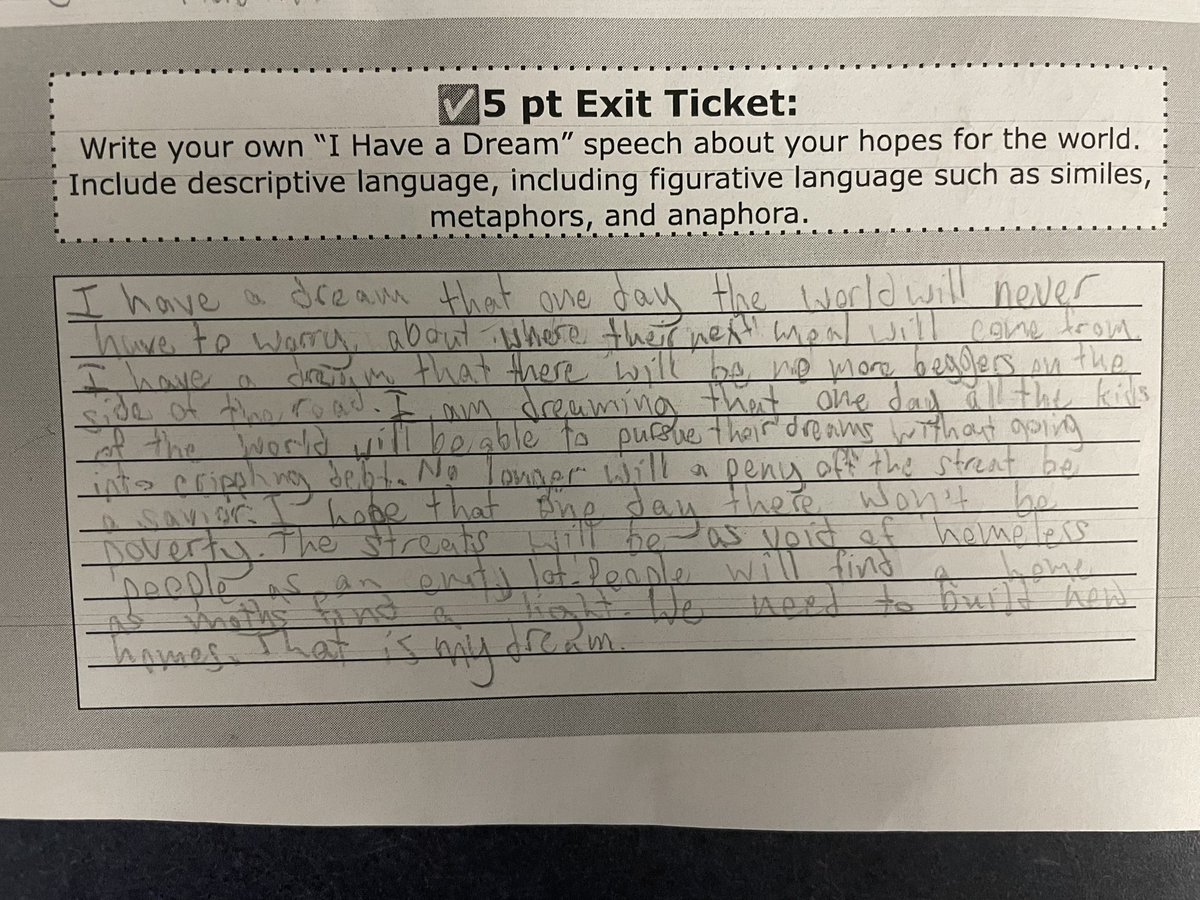 5 pt Exit Ticket:
Write your own “I Have a Dream” speech about your hopes for the world.
Include descriptive language, including figurative language such as similes,
metaphors, and anaphora.
I have a dream that one day the world will never
have to worry about where their next meal will come from.
I have a dream that there will be no more beggers on the
side of the road. I am dreaming that one day all the kids
of the world will be able to pursue their dreams without going
into crippling debt. No longer will a peny off the streat be
a savior. I hope that one day there won't be
poverty. The streats will be as void of homeless
people as an emty lot. People will find a home
as moths find a light. We need to build new
homes. That is my dream.